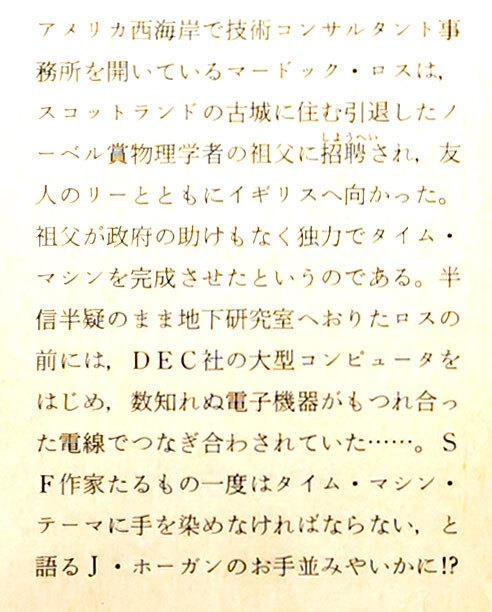 アメリカ西海岸で技術コンサルタント事
務所を開いているマードック・ロスは，
スコットランドの古城に住む引退したノ
ーベル賞物理学者の祖父に招聘され，友
しようへい
人のリーとともにイギリスへ向かった。
祖父が政府の助けもなく独力でタイム・
マシンを完成させたというのである。半
信半疑のまま地下研究室へおりたロスの
前には，ＤＥＣ社の大型コンピュータを
はじめ，数知れぬ電子機器がもつれ合っ
た電線でつなぎ合わされていた……。Ｓ
Ｆ作家たるもの一度はタイム・マシン・
テーマに手を染めなければならない，と
語るＪ・ホーガンのお手並みやいかに!?